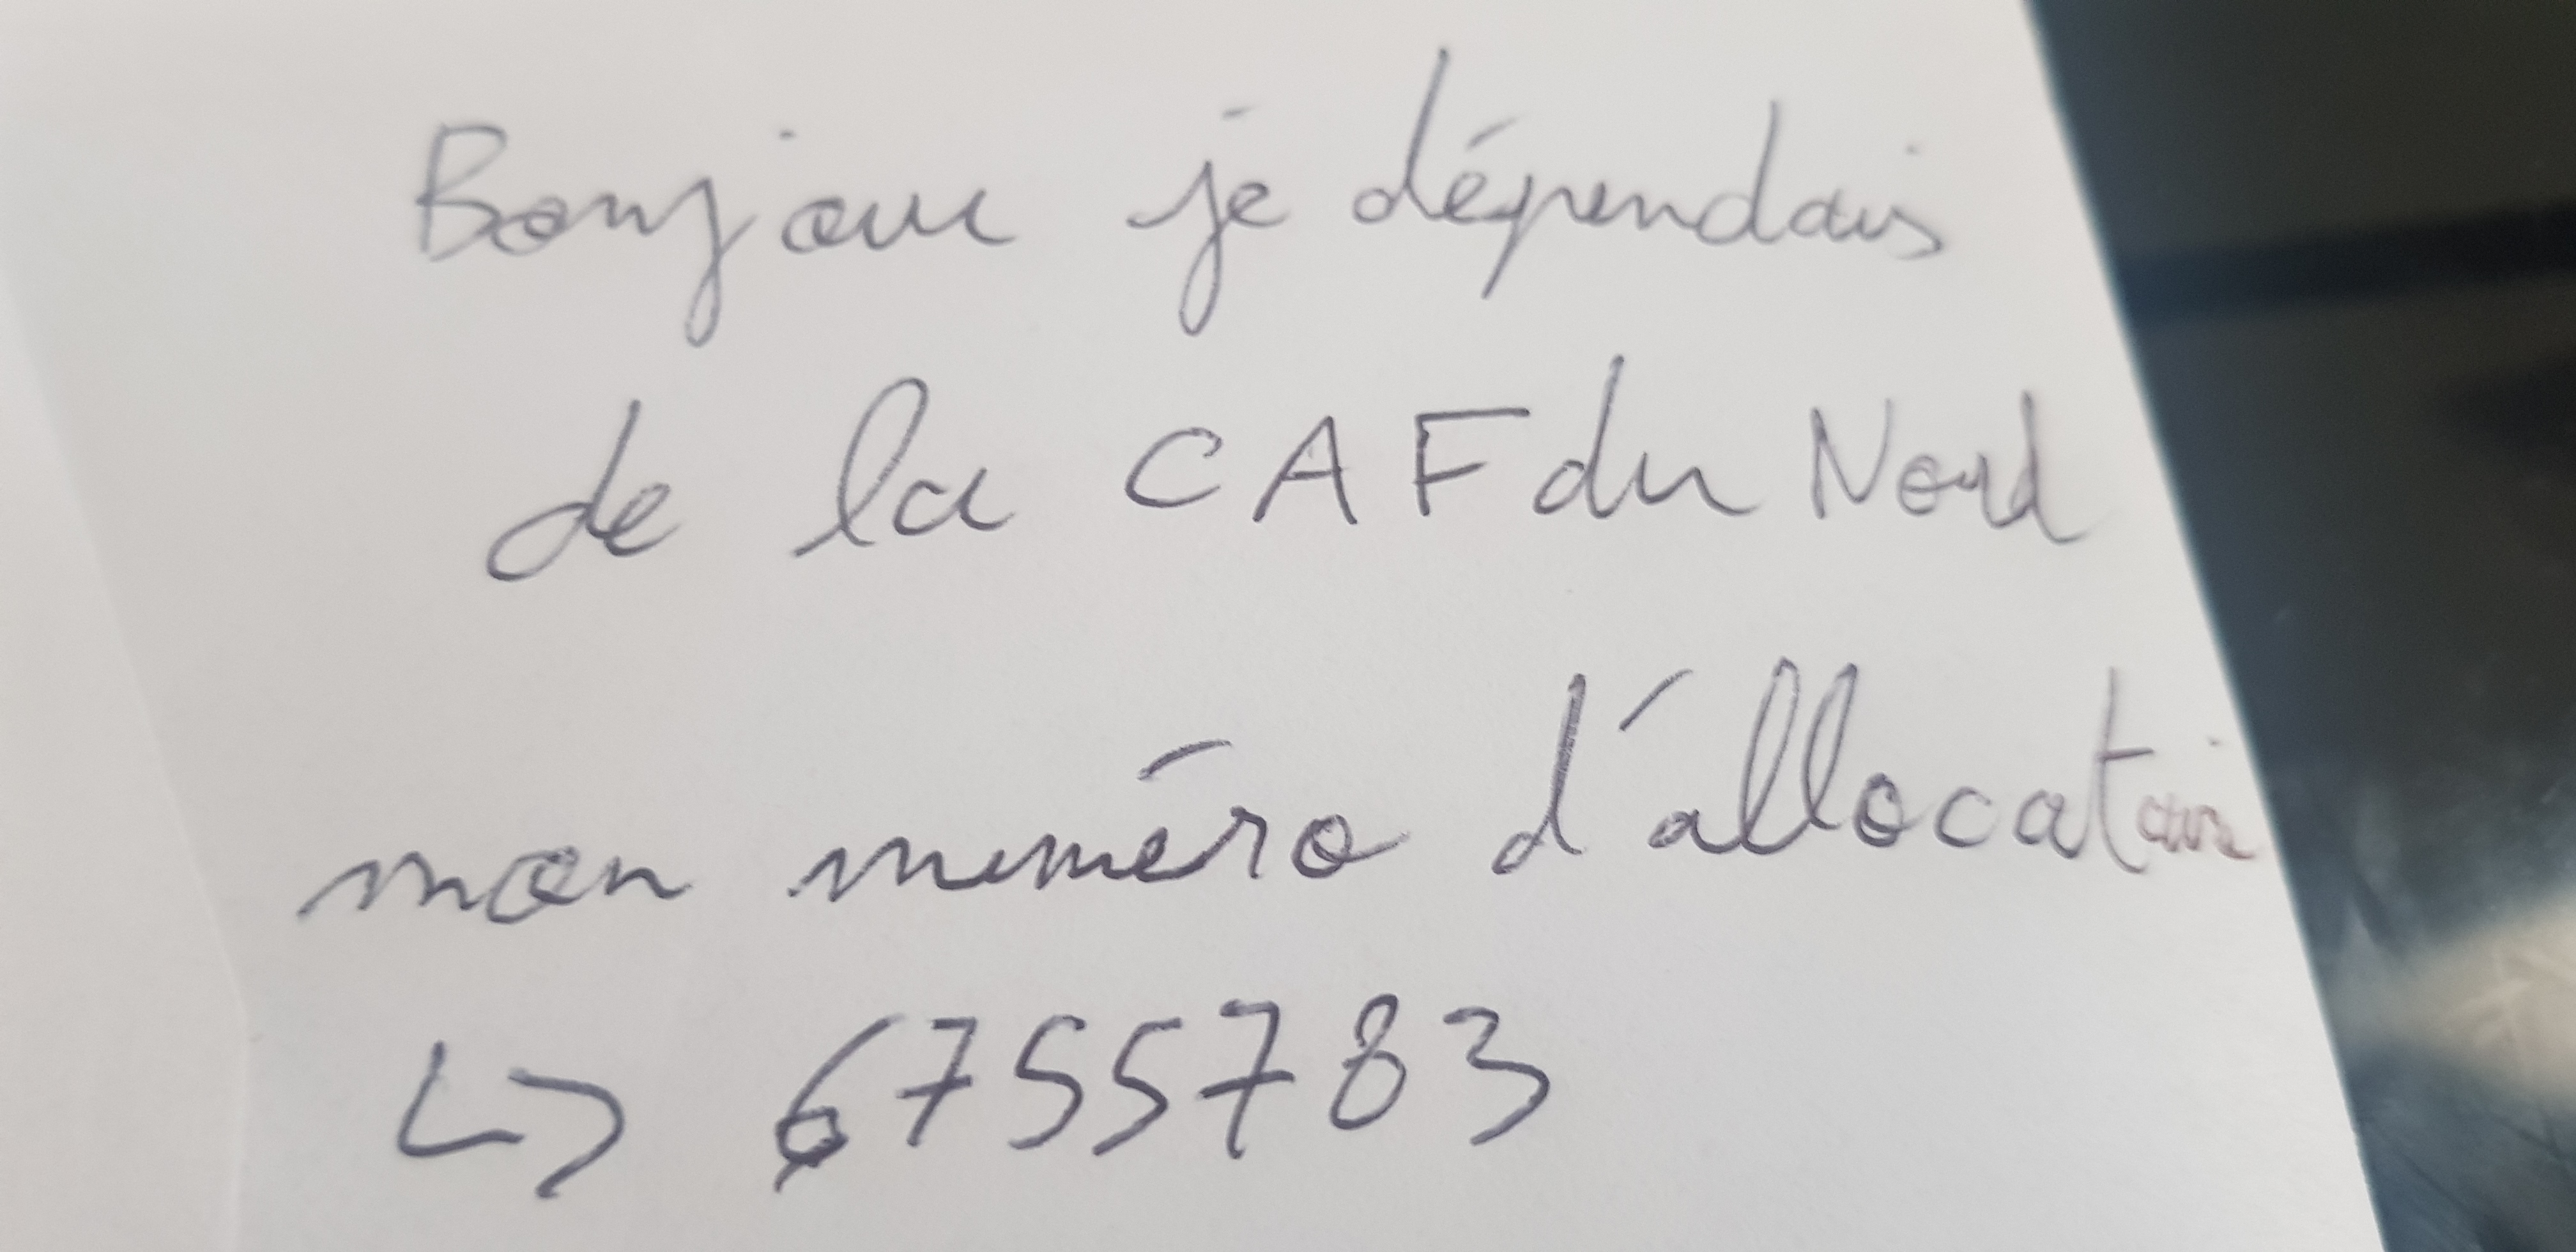 Bonjour je dépendais
de la CAF du Nord
mon numéro d'allocataire
↳ 6755783